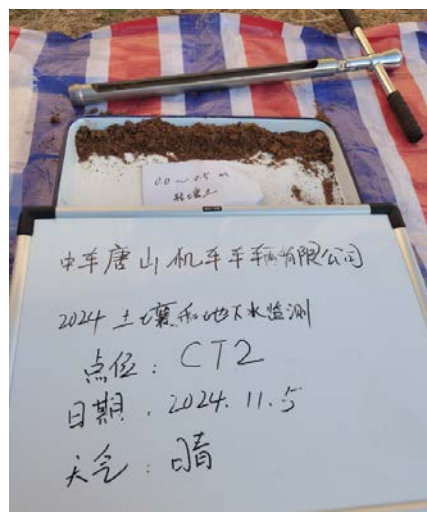 0.0~0.5m
轻壤土
中车唐山机车车辆有限公司
2024 土壤和地下水监测
点位：CT2
日期．2024.11.5
天气：晴